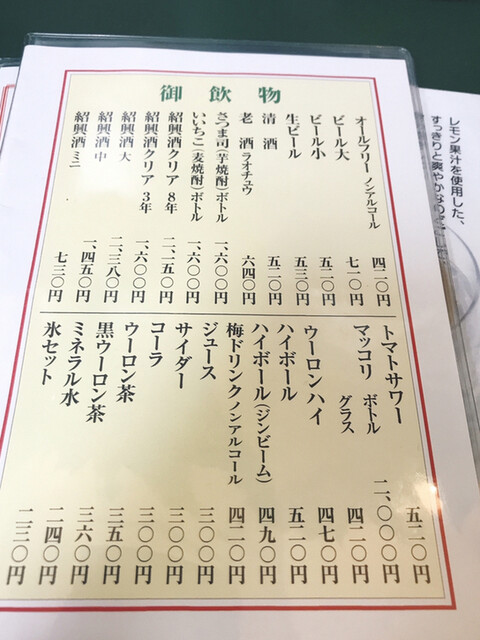 御飲物
オールフリー ノンアルコール 四二〇円
ビール大 七一〇円
ビール小 五二〇円
生ビール 五三〇円
清酒 五二〇円
老酒 ラオチュウ 六四〇円
さつま司(芋焼酎)ボトル 一、六〇〇円
いいちこ(麦焼酎)ボトル 一、六〇〇円
紹興酒クリア 8年 二、一五〇円
紹興酒クリア 3年 一、六〇〇円
紹興酒 大 二、三八〇円
紹興酒 中 一、四五〇円
紹興酒 ミニ 七三〇円
トマトサワー 五二〇円
マッコリ ボトル 二、〇〇〇円
グラス 四二〇円
ウーロンハイ 四七〇円
ハイボール 五二〇円
ハイボール(ジンビーム) 四九〇円
梅ドリンク ノンアルコール 四二〇円
ジュース 三〇〇円
サイダー 三〇〇円
コーラ 三〇〇円
ウーロン茶 三五〇円
黒ウーロン茶 三六〇円
ミネラル水 二四〇円
氷セット 二三〇円
レモン果汁を使用した、
すっきりと爽やかな